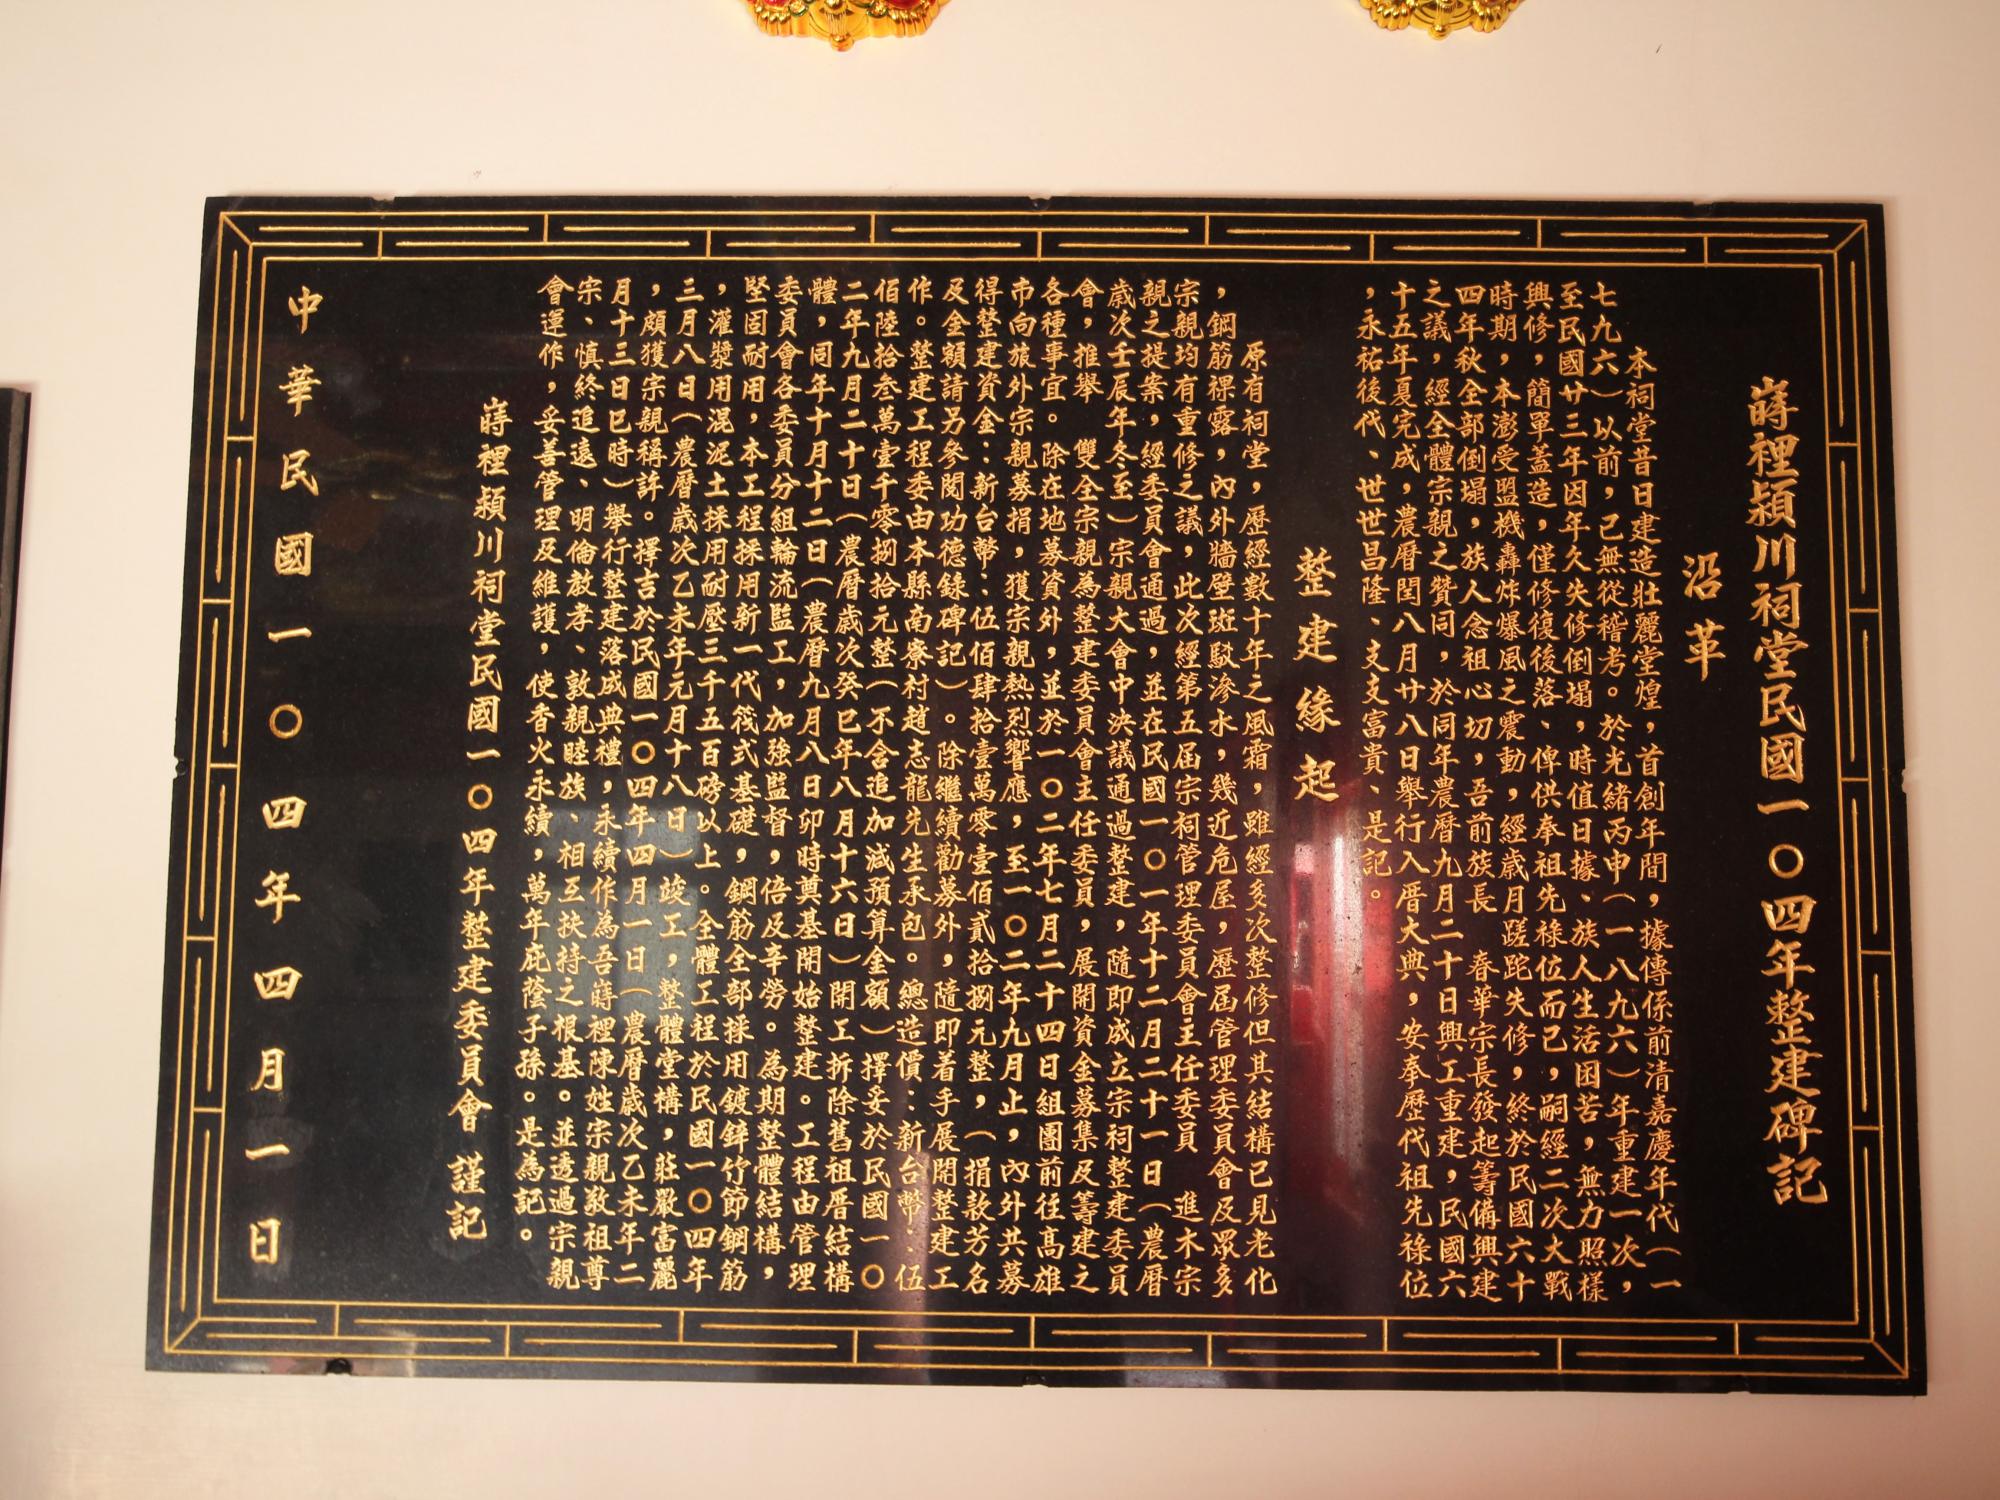 蒔裡潁川祠堂民國一〇四年整建碑記
沿革
本祠堂昔日建造壯麗堂煌，首創年間，據傳係前清嘉慶年代（一
七九六）以前，已無從稽考。於光緒丙申（一八九六）年重建一次，
至民國廿三年因年久失修倒塌，時值日據、族人生活困苦，無力照樣
興修，簡單蓋造，僅修復後落、俾供奉祖先祿位而已，嗣經二次大戰
時期，本澎受盟機轟炸爆風之震動，經歲月蹉跎失修，終於民國六十
四年秋全部倒塌，族人念祖心切，吾前族長　春華宗長發起籌備興建
之議，經全體宗親之贊同，於同年農曆九月二十日興工重建，民國六
十五年夏完成，農曆閏八月廿八日舉行入厝大典，安奉歷代祖先祿位
，永祐後代、世世昌隆、支支富貴、是記。
整建緣起
原有祠堂，歷經數十年之風霜，雖經多次整修但其結構已見老化
，鋼筋裸露，內外牆壁班駁滲水，幾近危屋，歷屆管理委員會及眾多
宗親均有重修之議，此次經第五屆宗祠管理委員會主任委員　進木宗
親之提案，經委員會通過，並在民國一〇一年十二月二十一日（農曆
歲次壬辰年冬至）宗親大會中決議通過整建，隨即成立宗祠整建委員
會，推舉　雙全宗親為整建委員會主任委員，展開資金募集及籌建之
各種事宜。除在地募資外，並於一〇二年七月二十四日組團前往高雄
市向旅外宗親募捐，獲宗親熱烈響應，至一〇二年九月止，內外共募
得整建資金：新台幣：伍佰肆拾壹萬零壹佰貳拾捌元整，（捐款芳名
及金額請另參閱功德錄碑記）。除繼續勸募外，隨即着手展開整建工
作。整建工程委由本縣南寮村趙志龍先生承包。總造價：新台幣：伍
佰陸拾叁萬壹千零捌拾元整（不含追加減預算金額）擇妥於民國一〇
二年九月二十日（農曆歲次癸巳年八月十六日）開工拆除舊祖厝結構
體，同年十月十二日（農曆九月八日卯時奠基開始整建。工程由管理
委員會各委員分組輪流監工，加強監督，倍及辛勞。為期整體結構，
堅固耐用，本工程採用新一代筏式基礎，鋼筋全部採用鍍鋅竹節鋼筋
，灌漿用混泥土採用耐壓三千五百磅以上。全體工程於民國一〇四年
三月八日（農曆歲次乙未年元月十八日）竣工，整體堂構，莊嚴富麗
，頗獲宗親稱許。擇吉於民國一〇四年四月一日（農曆歲次乙未年二
月十三日巳時）舉行整建落成典禮，永續作為吾蒔裡陳姓宗親敦祖尊
宗、慎終追遠、明倫教孝、敦親睦族、相互扶持之根基。並透過宗親
會運作，妥善管理及維護，使香火永續，萬年庇蔭子孫。是為記。
蒔裡潁川祠堂民國一〇四年整建委員會　謹記
中華民國一〇四年四月一日